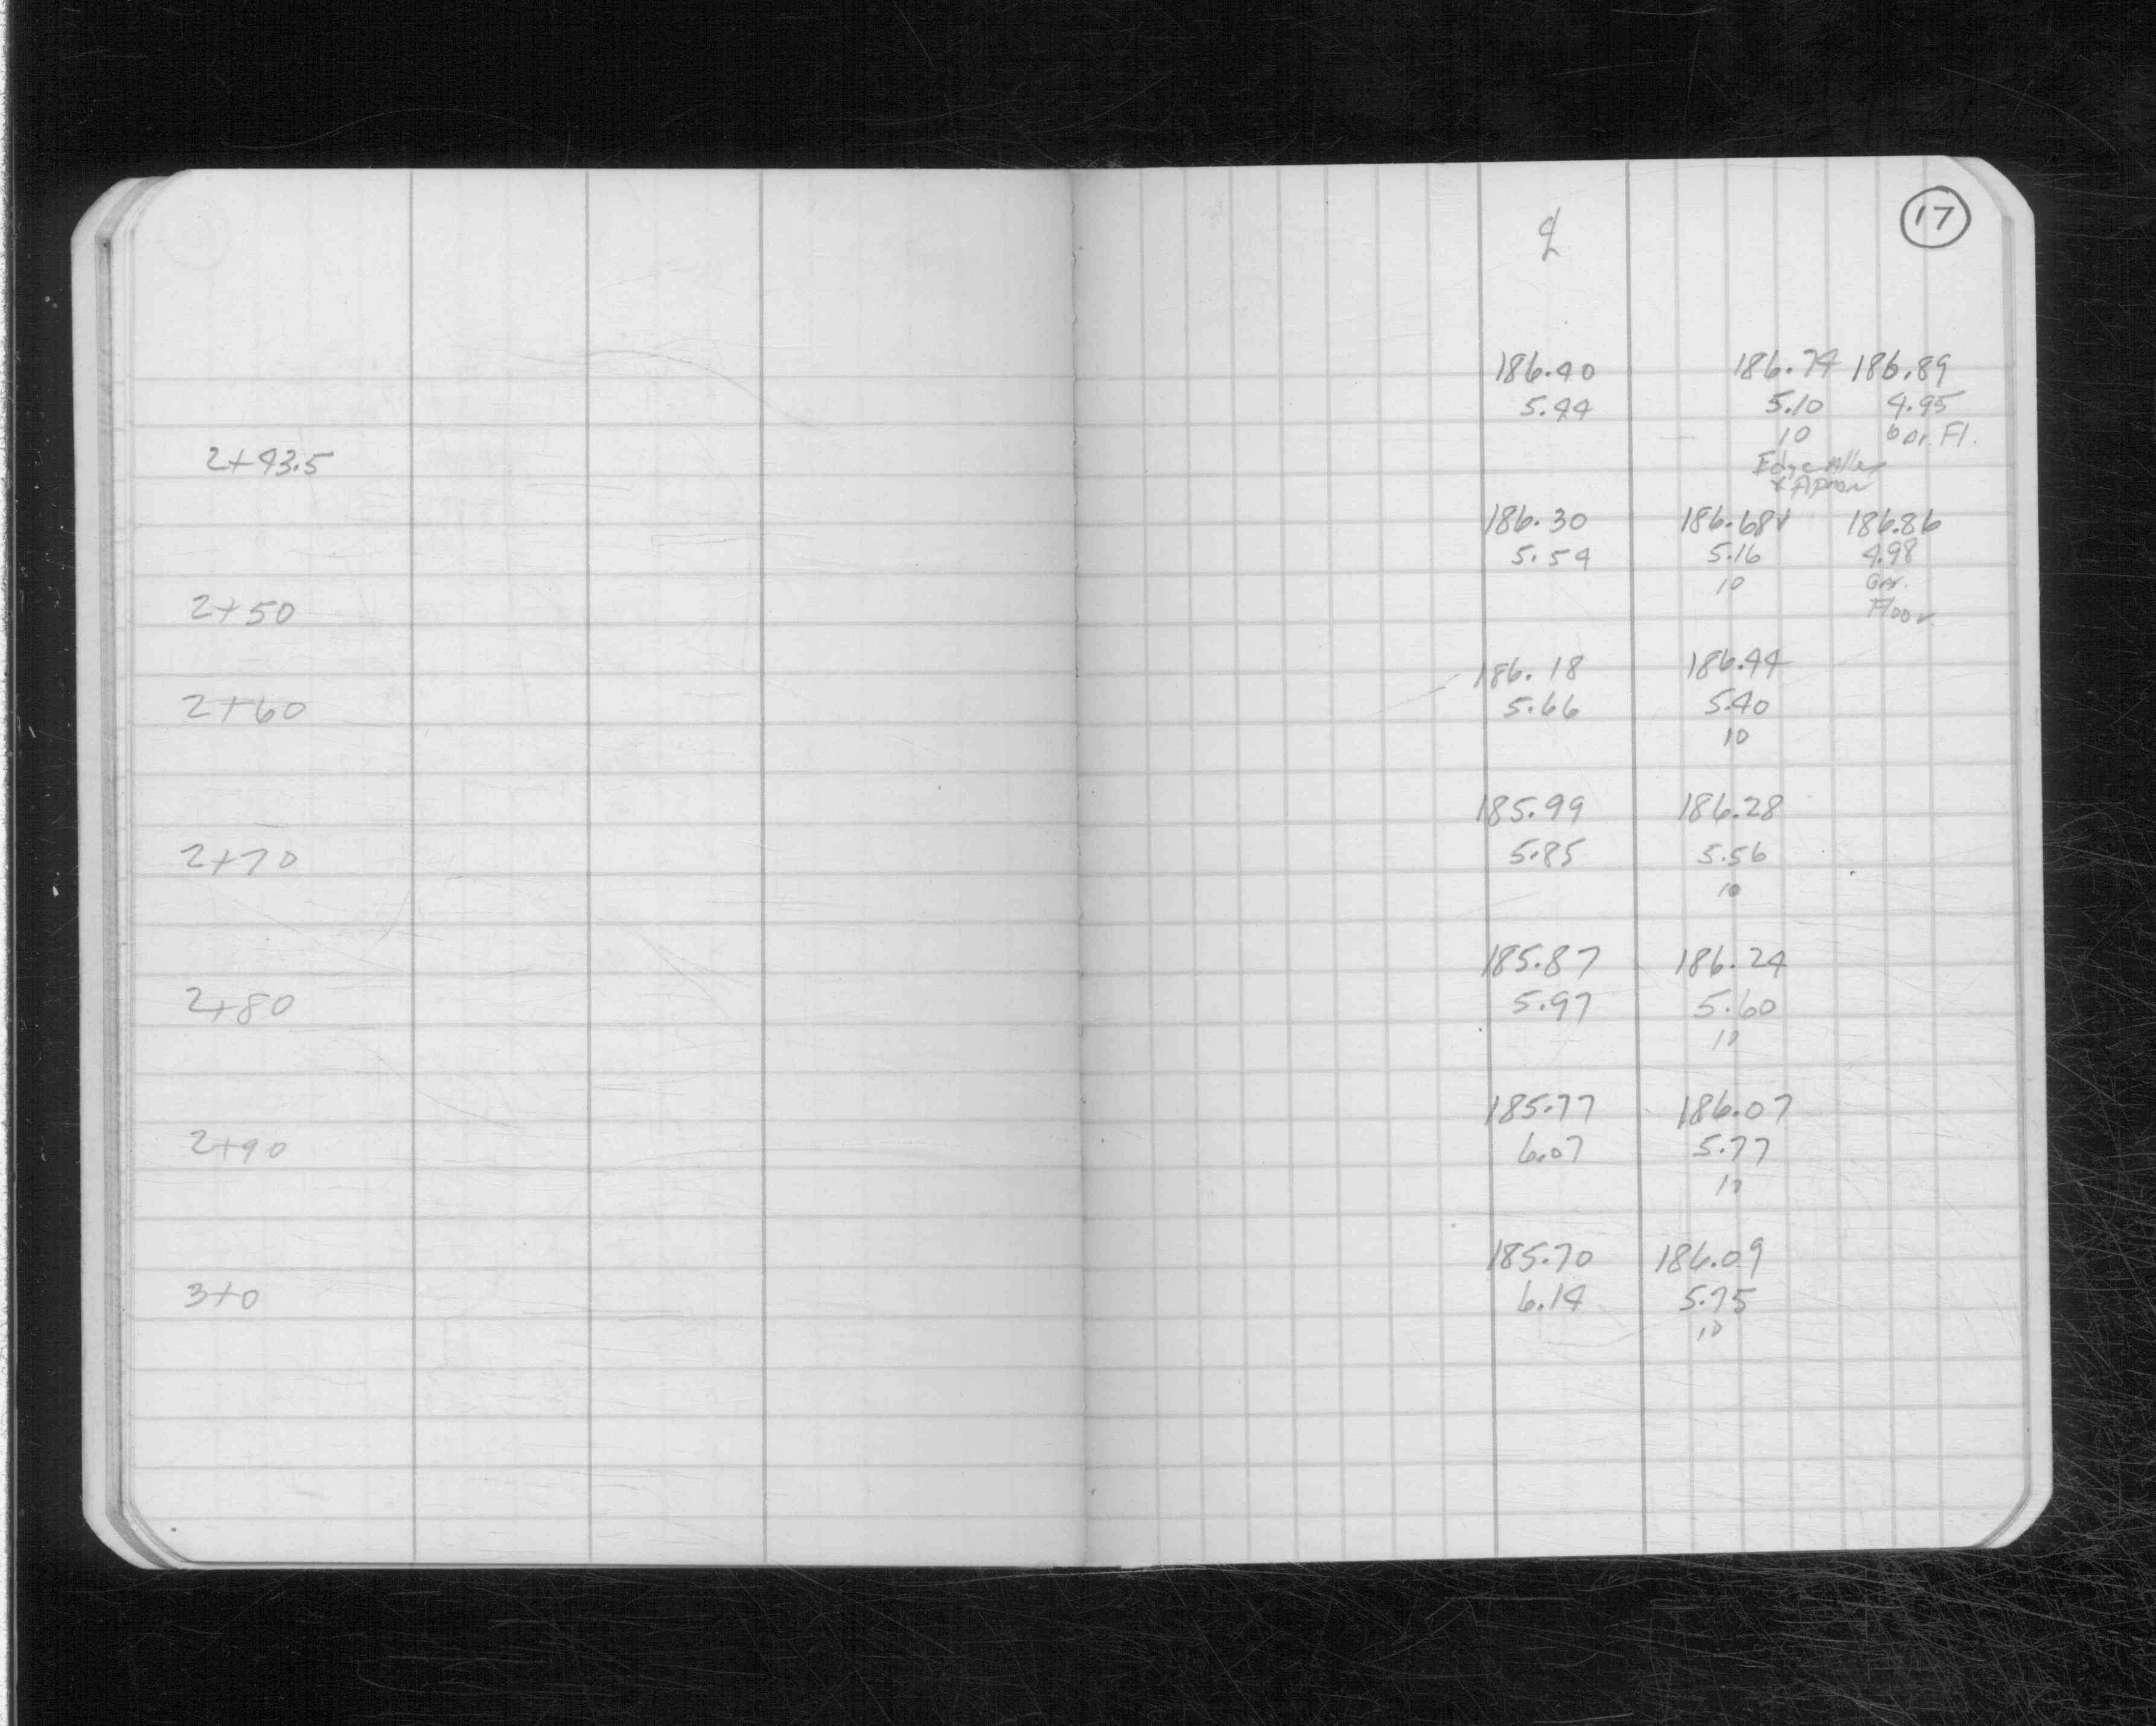 17
℄
186.40 186.74 186.89
5.44 5.10 4.95
10 Gar. Fl.
2+43.5
Edge Alley
& Apron
186.30 186.68 186.86
5.54 5.16 4.98
10 Gar.
2+50
Floor
186.18 186.44
2+60 5.66 5.40
10
185.99 186.28
2+70 5.85 5.56
10
185.87 186.24
2+80 5.97 5.60
10
185.77 186.07
2+90 6.07 5.77
10
185.70 186.09
3+0 6.14 5.75
10